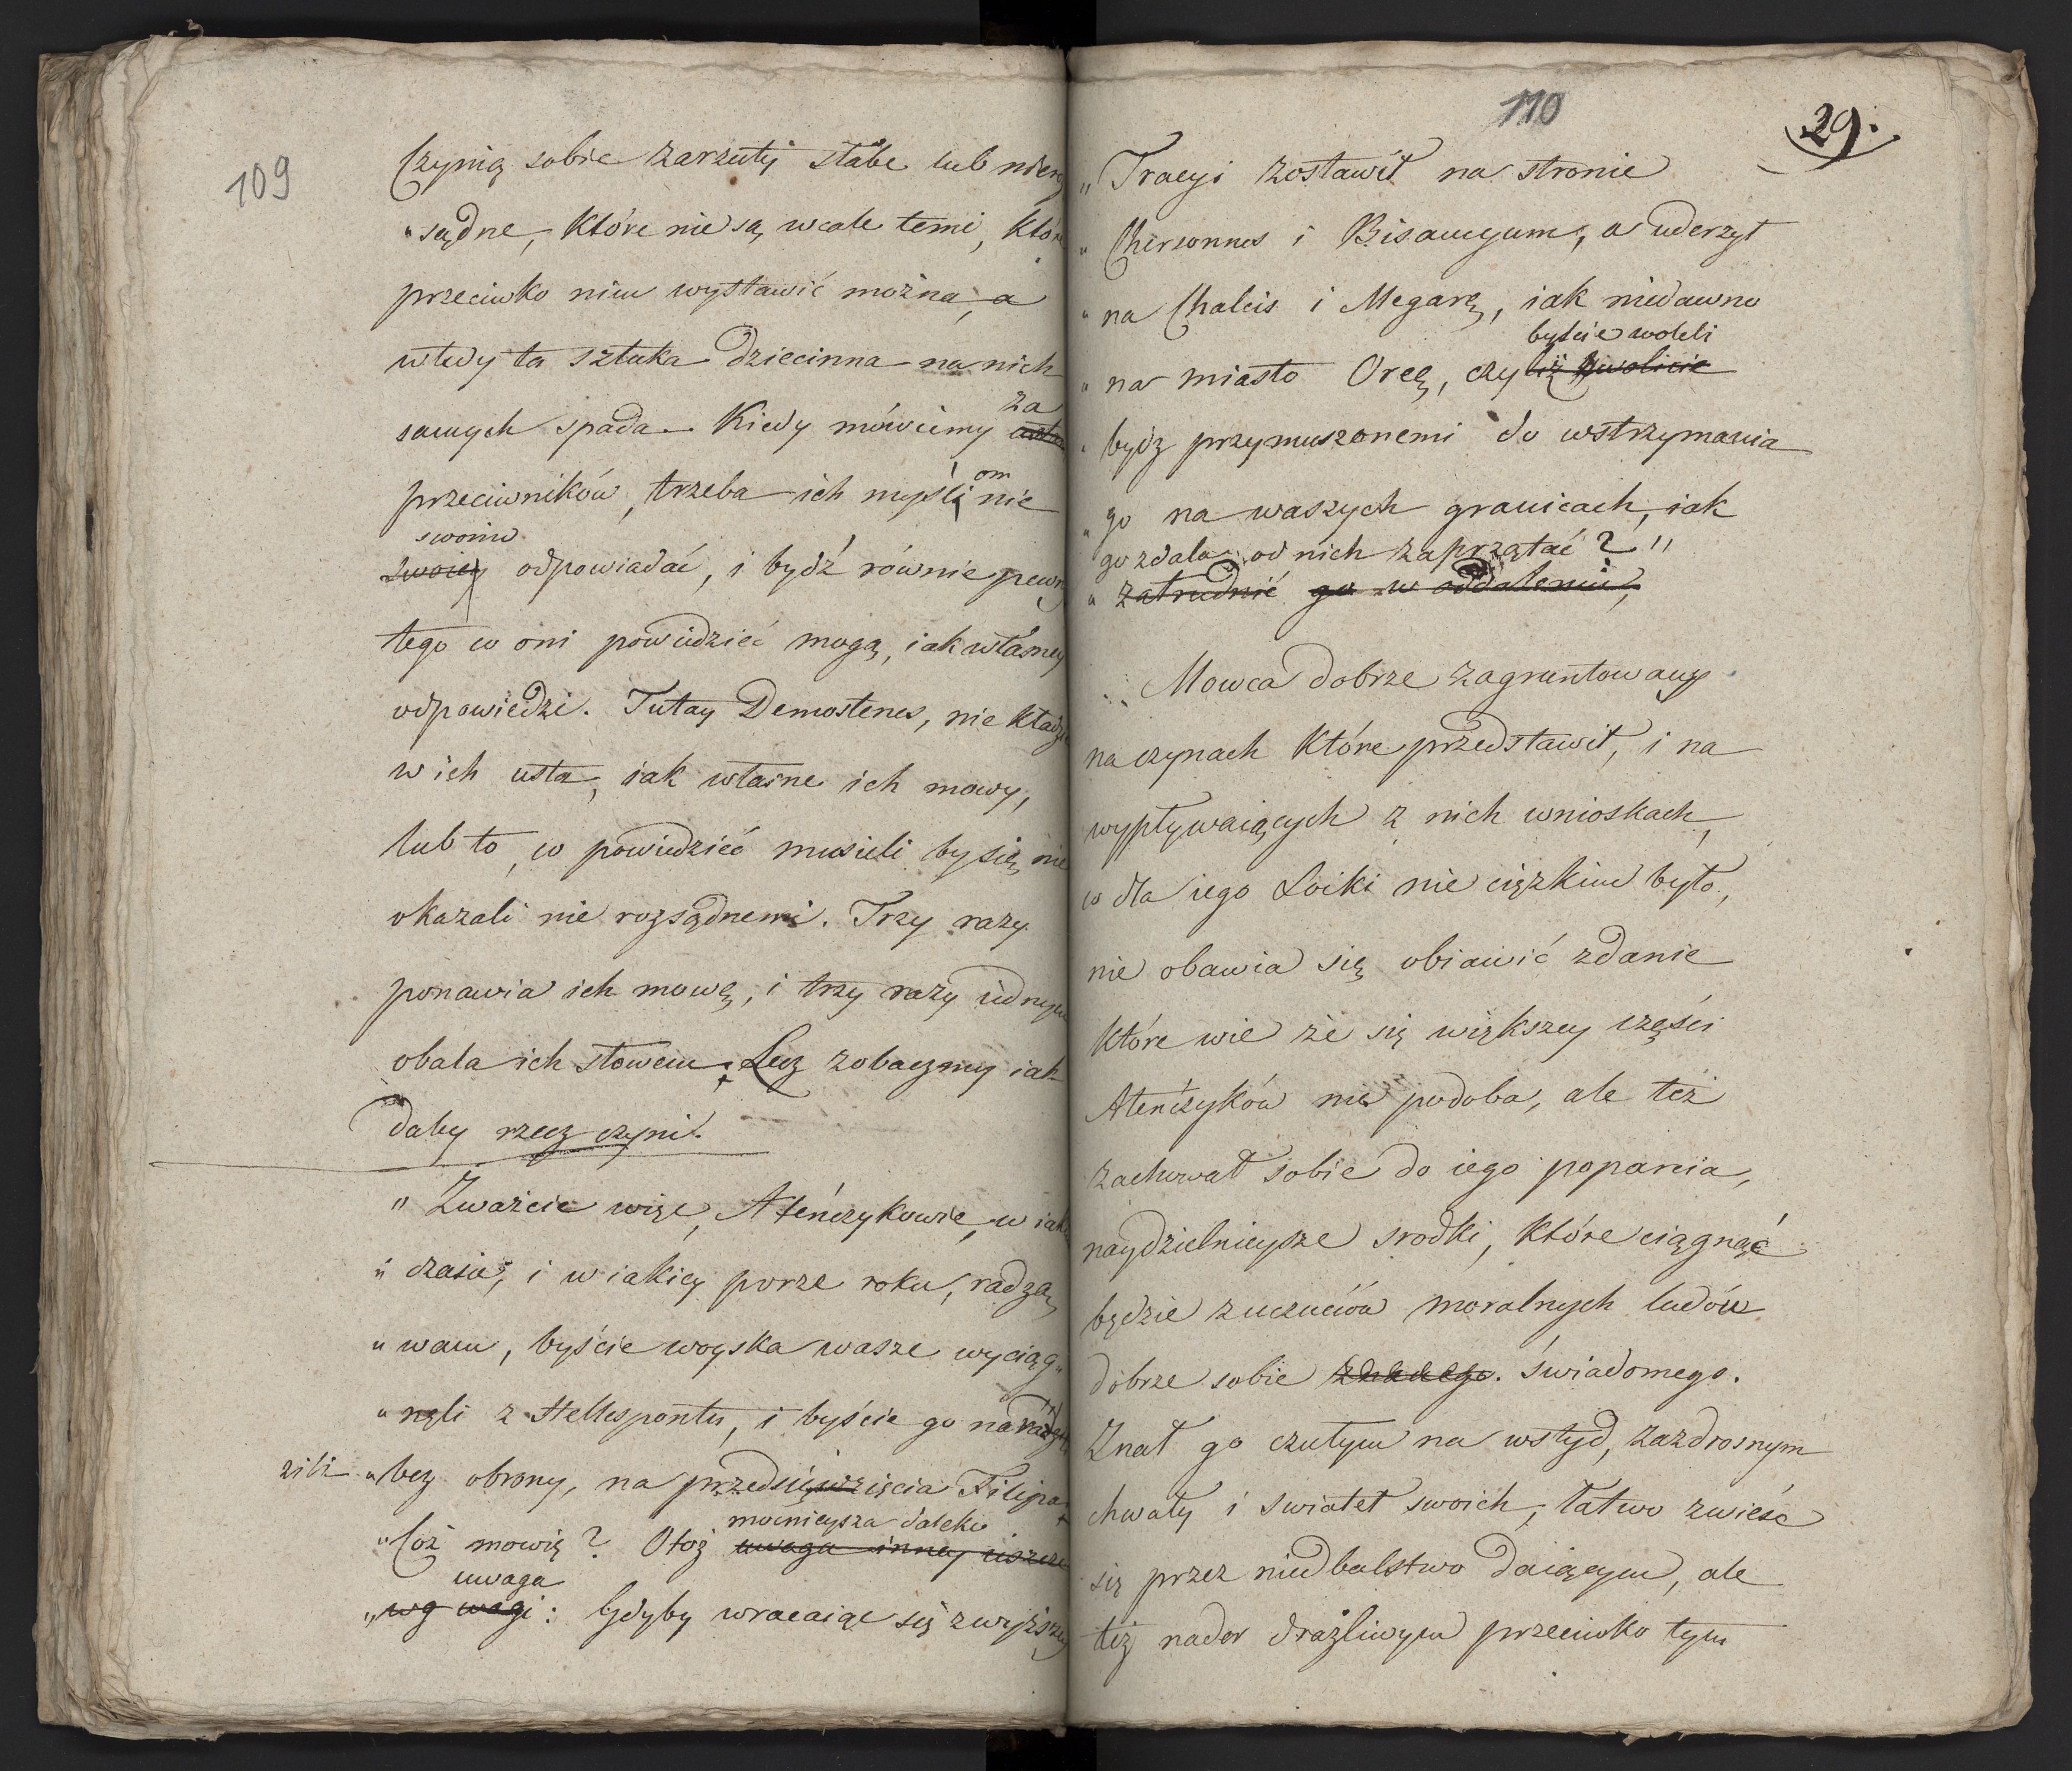 109
Czynią sobie zarzuty słabe lub niero
"sądne, które nie są wcale temi, któ
przeciwko nim wystawić można, a
wtedy ta sztuka dziecinna na nich
za
samych spada. Kiedy mówiemy
om
przeciwników, trzeba ich myśli nie
swoim
swoiey odpowiadać, i bydź równie pewn
tego co oni powiedzieć mogą, iak własney
odpowiedzi. Tutay Demostenes, nie kładzie
w ich usta, iak własne ich mowy,
lub to, co powiedzieć musieli by się nie
okazali nie rozsądnemi. Trzy razy
ponawia ich mowę, i trzy razy iednym
obala ich słowem. Lecz zobaczmy iak
daley rzecz czyni.
" Zważcie więc, Ateńczykowie, w iak
" czasie, i w iakiey porze roku, radzą
" wam, byście woyska wasze wyciąg„
" nęli z Hellespontu, i byście go nara
zili " bez obrony, na przedsięwzięcia Filipa
mocnieysza daleko
" Coż mowię? Otoż uwaga inney ieszcze
uwaga
" wagi: Gdyby wracaiąc się zwyższy
110
29.
" Tracyi zostawił na stronie
" Chersonnes i Bisancyum, a uderzył
" na Chalcis i Megarę, iak niedawno
byście woleli
" na miasto Oreę, czyliż zwolicie
" bydz przymuszonemi do wstrzymania
" go na waszych granicach, iak
go zdala od nich zaprzątać? "
" zatrudnić go w oddaleniu,
Mowca dobrze zagruntowany
na czynach które przedstawił, i na
wypływaiących z nich wnioskach,
co dla iego Loiki nie ciężkim było,
nie obawia się obiawić zdanie
które wie że się większey części
Ateńczyków nie podoba, ale też
zachował sobie do iego poparcia,
naydzielnieysze srodki, które ciągnąć
będzie z uczuciów moralnych ludów
dobrze sobie znanego. świadomego.
Znał go czutym na wstyd, zazdrosnym
chwały i swiateł swoich, łatwo zwieść
się przez niedbalstwo daiącym, ale
też nader drażliwym przeciwko tym